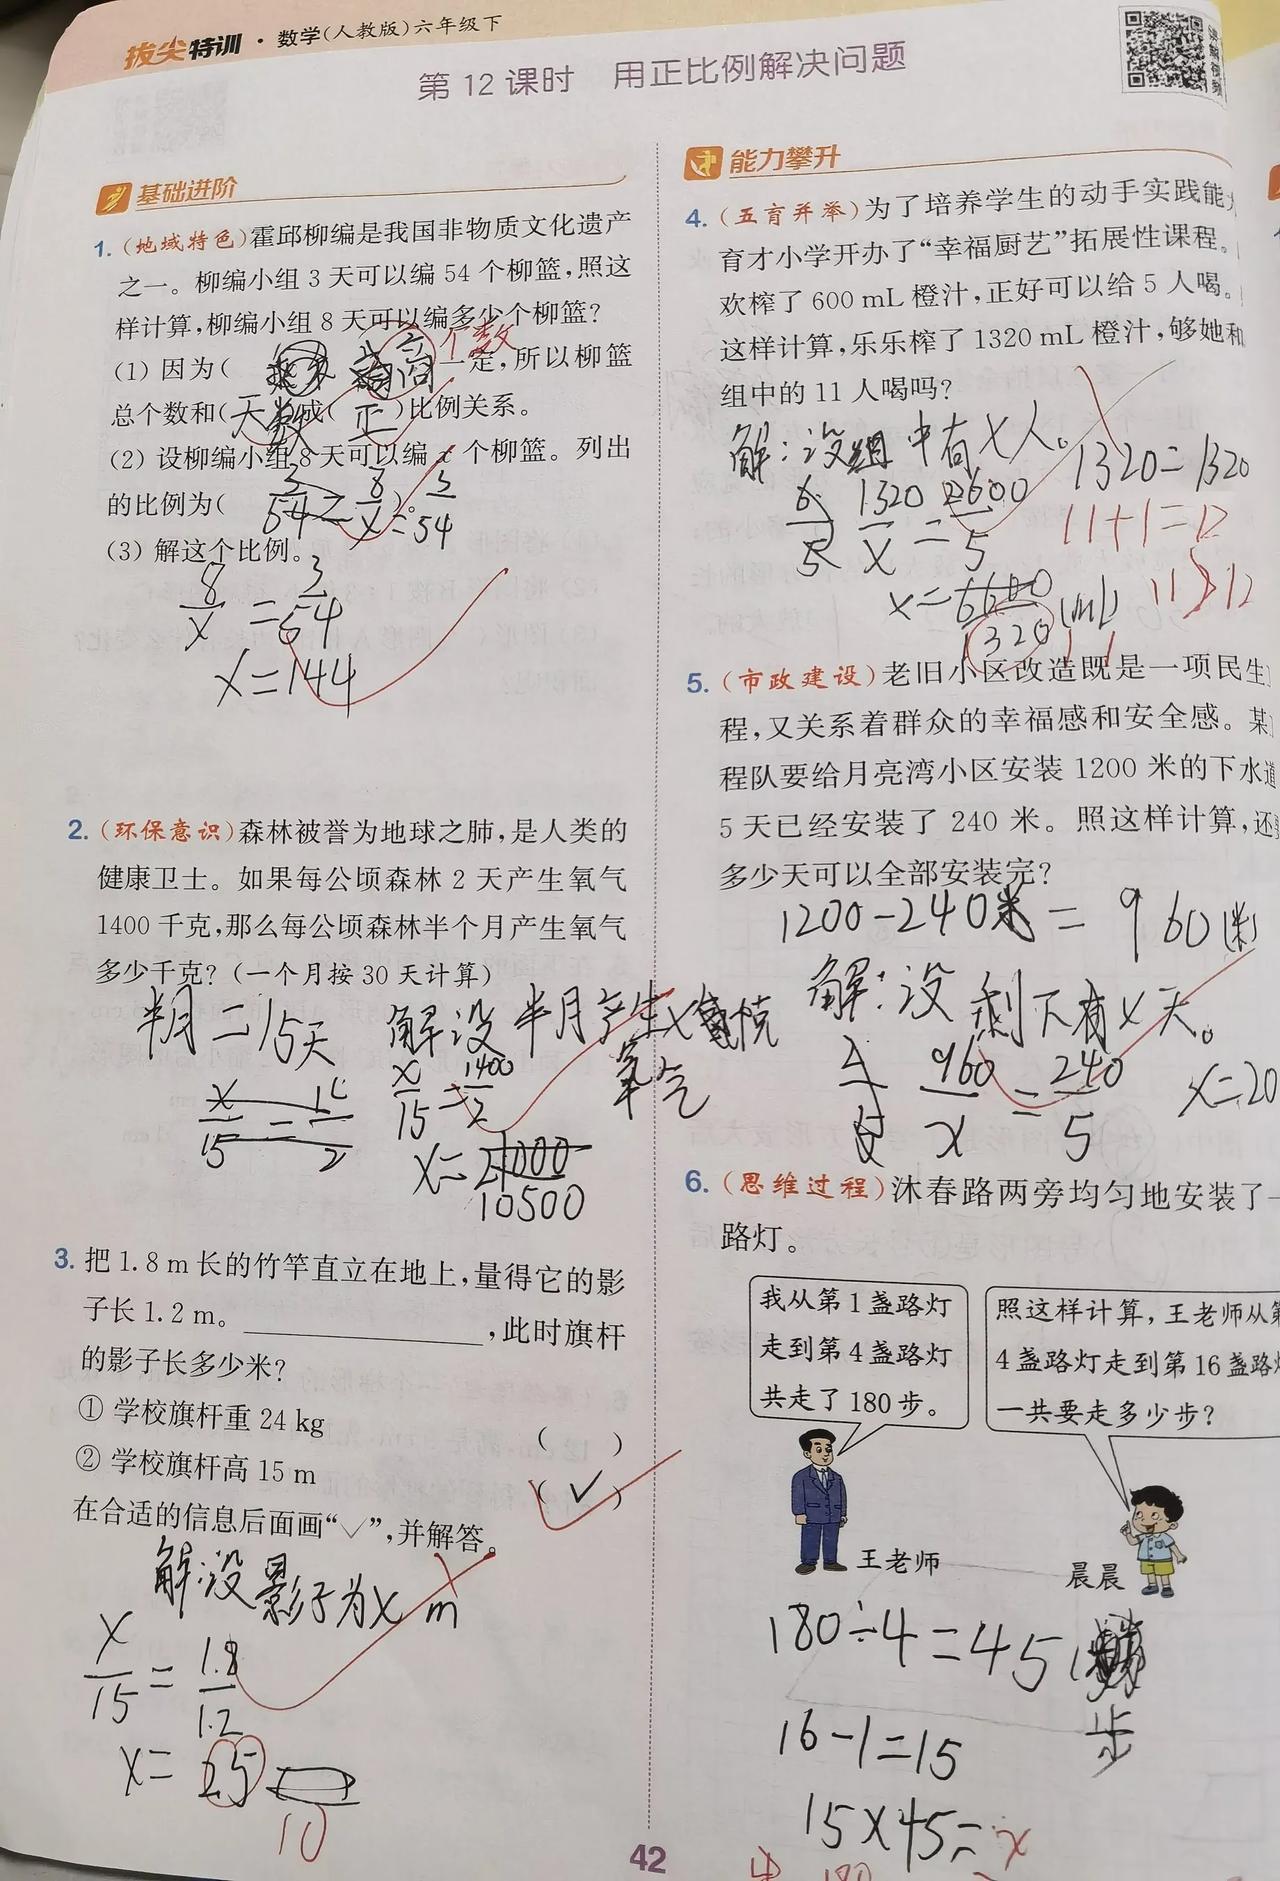 拔尖特训·数学(人教版)六年级下
第12课时 用正比例解决问题
基础进阶
1.(地域特色)霍邱柳编是我国非物质文化遗产
之一。柳编小组3天可以编54个柳篮,照这
样计算,柳编小组8天可以编多少个柳篮?
个数
(1)因为( 一定,所以柳篮
总个数和(天数)成(正)比例关系。
(2)设柳编小组8天可以编x个柳篮。列出
的比例为( 8/x = 3/54
(3)解这个比例。
8/x = 3/54
x=144
2.(环保意识)森林被誉为地球之肺,是人类的
健康卫士。如果每公顷森林2天产生氧气
1400千克,那么每公顷森林半个月产生氧气
多少千克?(一个月按30天计算)
半月=15天 解设半月产生x
氧气
x/15 = 1400/2
x=
10500
3.把1.8m长的竹竿直立在地上,量得它的影
子长1.2m。____________,此时旗杆
的影子长多少米?
①学校旗杆重24kg ( )
②学校旗杆高15m (✓)
在合适的信息后面画“✓”,并解答。
解:设影子为x m
x/15 = 1.8/1.2
x=
10
能力攀升
4.(五育并举)为了培养学生的动手实践能
育才小学开办了“幸福厨艺”拓展性课程。
欢榨了600mL橙汁,正好可以给5人喝。
这样计算,乐乐榨了1320mL橙汁,够她和
组中的11人喝吗?
解:设组中有x人。
1320=1320
1320/x = 600/5
11+1=12
x=6600/1320(ml)
5.(市政建设)老旧小区改造既是一项民生
程,又关系着群众的幸福感和安全感。某
程队要给月亮湾小区安装1200米的下水道
5天已经安装了240米。照这样计算,还
多少天可以全部安装完?
1200-240米=960(米)
解:设剩下有x天。
960/x = 240/5
x=20
6.(思维过程)沐春路两旁均匀地安装了一
路灯。
我从第1盏路灯
走到第4盏路灯
共走了180步。
照这样计算,王老师从第
4盏路灯走到第16盏路灯
一共要走多少步?
王老师
晨晨
180÷4=45
步
16-1=15
15×45=
180
42